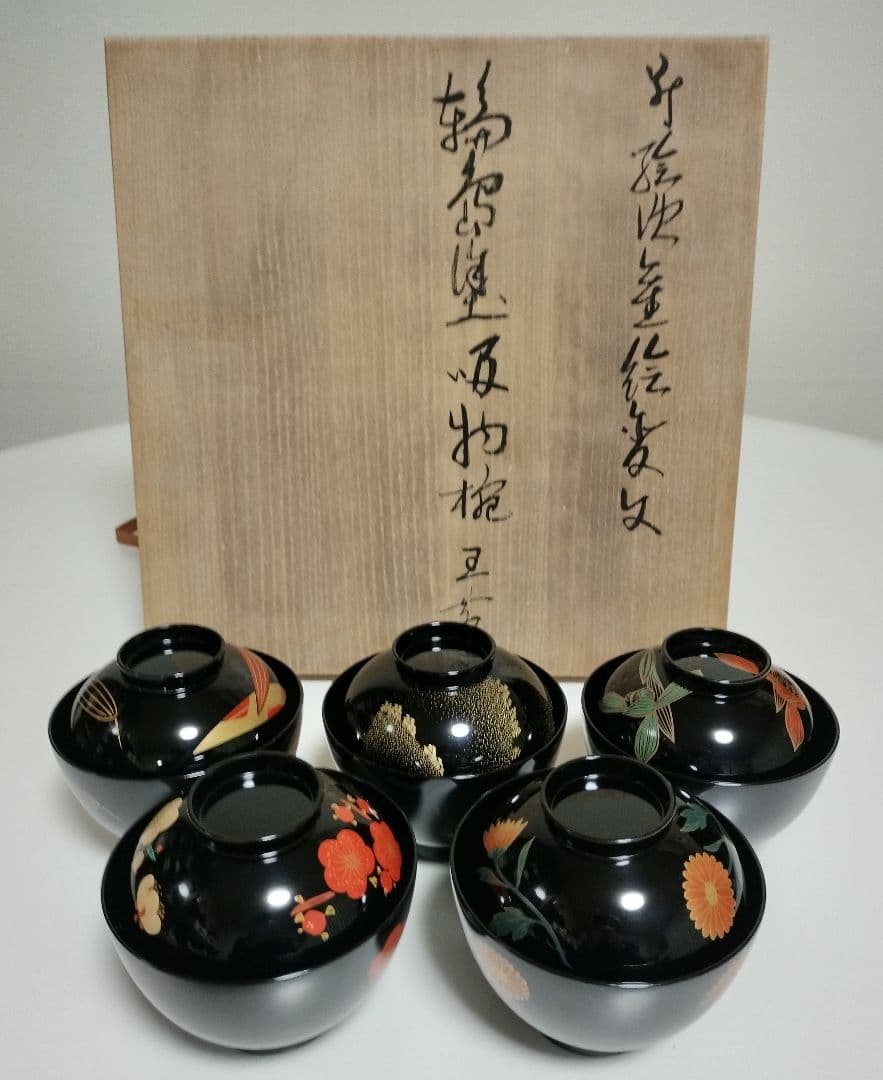 蒔絵沈金絵変文
輪島塗吸物椀 五客